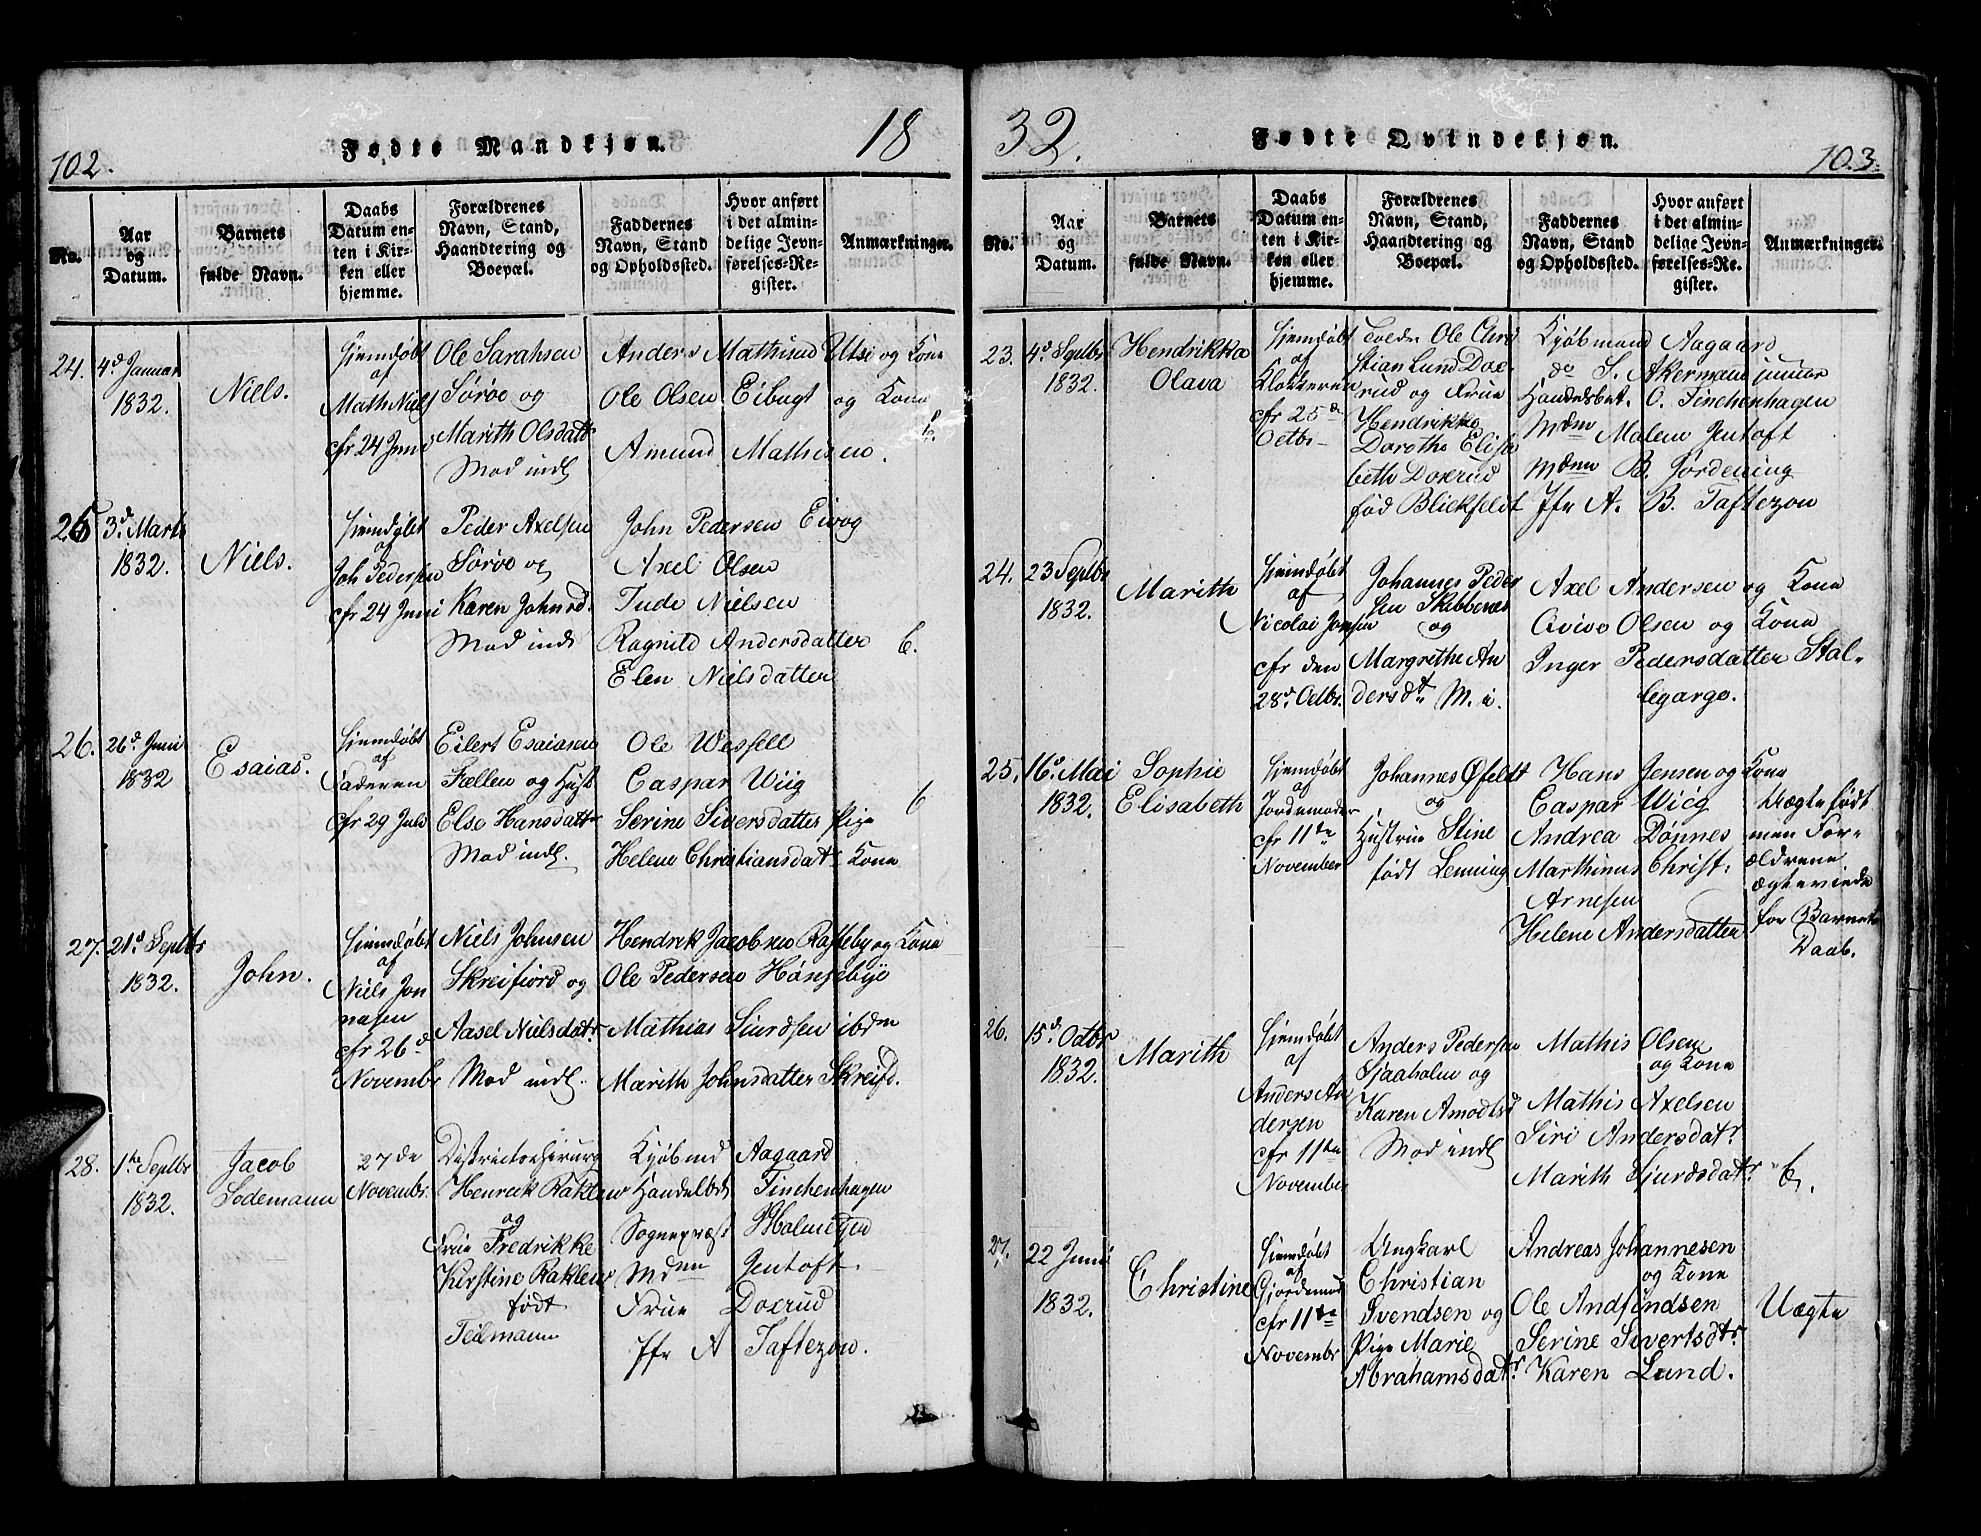 102.
Fødte Mandkjøn.
18
No.
Aar
og
Datum.
Barnets
fulde Navn.
Daabs
Datum en-
ten i Kir-
ken eller
hjemme.
Forældrenes
Navn, Stand,
Haandtering og
Boepæl.
Faddernes
Navn, Stand
og Opholdssted.
Hvor anført
i det almin-
delige Jevn-
førelses-Re-
gister.
Anmærkninger.
24.
4d Januar
1832.
Niels.
Hjemdøbt
af
Math Niels
cfr 24 Juni
Ole Sarahsen
Sørøe og
Marith Olsdattr
Mod indl
Anders Mathisen Utsi og Kone
Ole Olsen Eibugt og Kone
Amund Mathisen.
6.
25
3d Marts
1832.
Niels.
Hjemdøbt
af
Joh Pedersen
cfr 24 Juni
Peder Axelsen
Sørøe og
Karen Johnsd.
Mod indl
John Pedersen Eivog
Axel Olsen
Tude Nielsen
Ragnild Andersdatter
Elen Nielsdatter
6.
26.
26d Juni
1832
Esaias.
Hjemdøbt
af
Faderen
cfr 29 Juli
Eilert Esaiasen
Fællen og Hust
Else Hansdattr
Mod indl.
Ole Wessell
Caspar Wiig
Serine Siversdatter Pige
Helene Christiansdatr Kone
6
27.
21d Septbr
1832.
John.
Hjemdøbt
af
Niels Jon
nasen
cfr 26d
Novembr
Niels Johnsen
Skreifiord og
Aasel Nielsdatr
Mod indl.
Hendrik Jacobsen Rafteby og Kone
Ole Pedersen Hønsebye
Mathias Siurdsen ibdm
Marith Johnsdatter Skreifd.
28.
1te Septbr
1832.
Jacob
Sodemann
27de
Novembr.
Districtschirurg
Henrick Raklew
og
Frue Fredrikke
Kirstine Raklew
født
Teilmann
Kjøbmd Aagaard
Handelbet Finchenhagen
Sognepræst Holmesen
Mdm Gentoft.
Frue Doxrud
Jfr A Taftezon.
32.
Fødte Qvindekjøn.
103.
No.
Aar
og
Datum.
Barnets
fulde Navn.
Daabs
Datum en-
ten i Kir-
ken eller
hjemme.
Forældrenes
Navn, Stand,
Haandtering og
Boepæl.
Faddernes
Navn, Stand
og Opholdssted.
Hvor anført
i det almin-
delige Jevn-
førelses-Re-
gister.
Anmærkninger.
23.
4d Septbr
1832.
Hendrikka
Olava
Hjemdøbt
af
Klokkeren
cfr 25de
Octbr
Ole Chri
stian Lund Dox
rud og Frue
Hendrikke
Dorothe Elisa
beth Doxrud
fød Blickfeldt
Kjøbmand Aagaard
do S. Akermann junior
Handelsbet. O. Finchenhagen
Mdm Malene Gentoft
Mdm B. Jørdening
Jfr A. B. Taftezon
24.
23 Septbr
1832.
Marith
Hjemdøbt
af
Nicolai Jonsen
cfr den
28d Octbr.
Johannes Peder
sen Skibbenes
og
Margrethe An
dersdt M. i.
Axel Andersen og Kone
Qvive Olsen og Kone
Inger Pedersdatter Stal-
legargo.
25.
16d Mai
1832.
Sophie
Elisabeth
Hjemdøbt
af
Jordemoder
cfr 11te
November
Johannes Øfeldt
og
Hustrue Stine
født Lenning
Hans Jensen og Kone
Caspar Wiig
Andrea Dønnes
Marthinus Christ:
Arnesen
Helene Andersdatter
Uægte født
men For-
ældrene
ægteviede
for Barnets
Daab.
26.
15d Octbr
1832.
Marith
Hjemdøbt
af
Anders An
dersen
cfr 11te
November
Anders Pedersen
Sjaaholm og
Karen Amodtsd
Mod indl
Mathis Olsen
og Kone
Mathis Axelsen
Siri Andersdatr
Marith Sjurdsdatr
6.
27.
22 Juni
1832.
Christine
Hjemdøbt
af
Gjordemod
cfr 11te
Novembr
Ungkarl
Christian
Svendsen og
Pige Marie
Abrahamsdatr
Andreas Johannesen
og Kone
Ole Andfindsen
Serine Sivertsdtr
Karen Lund.
Uægte